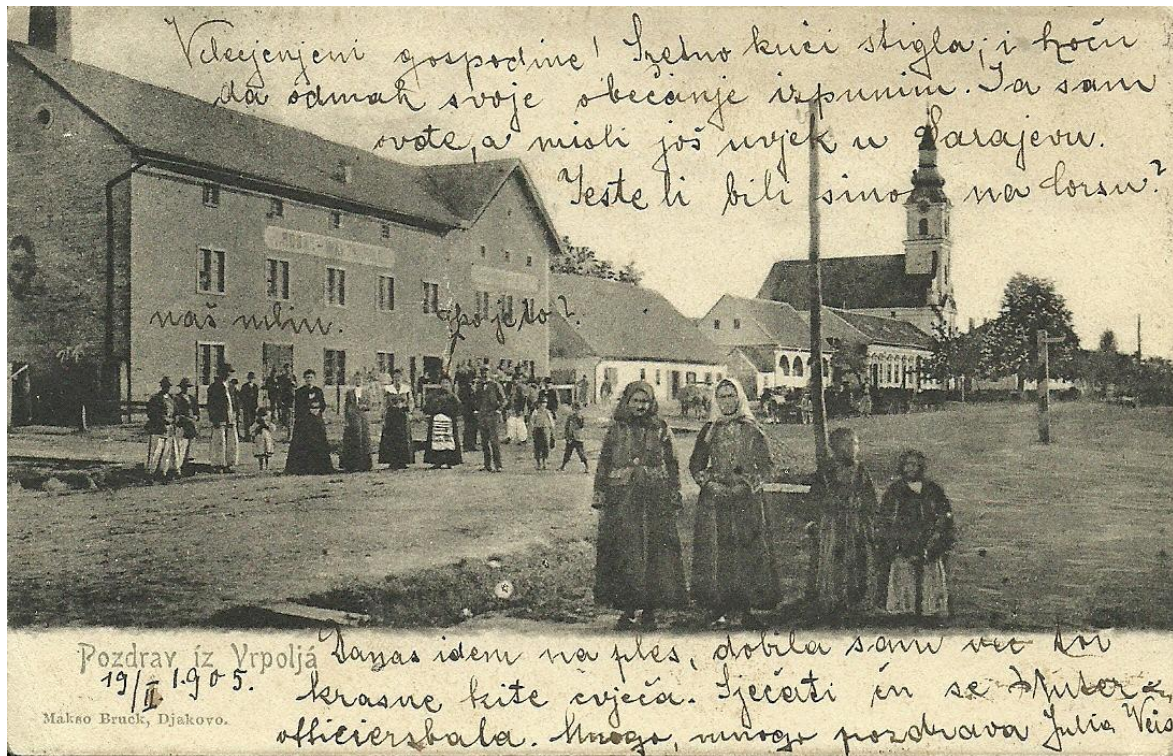 Velecjenjeni gospodine! Sretno kući stigla; i hoću
da odmah svoje obećanje izpunim. Ja sam
ovdje, a misli još uvjek u Sarajevu.
Jeste li bili sinoć na Corsu?
naš mlin.
Tko je to?
Pozdrav iz Vrpolja
19/II. 1905.
Makso Bruck, Djakovo.
Danas idem na ples, dobila sam već
krasne kite cvjeća. Sjećati ću se Unter-
officiersbala. Mnogo, mnogo pozdrava Julia Weis